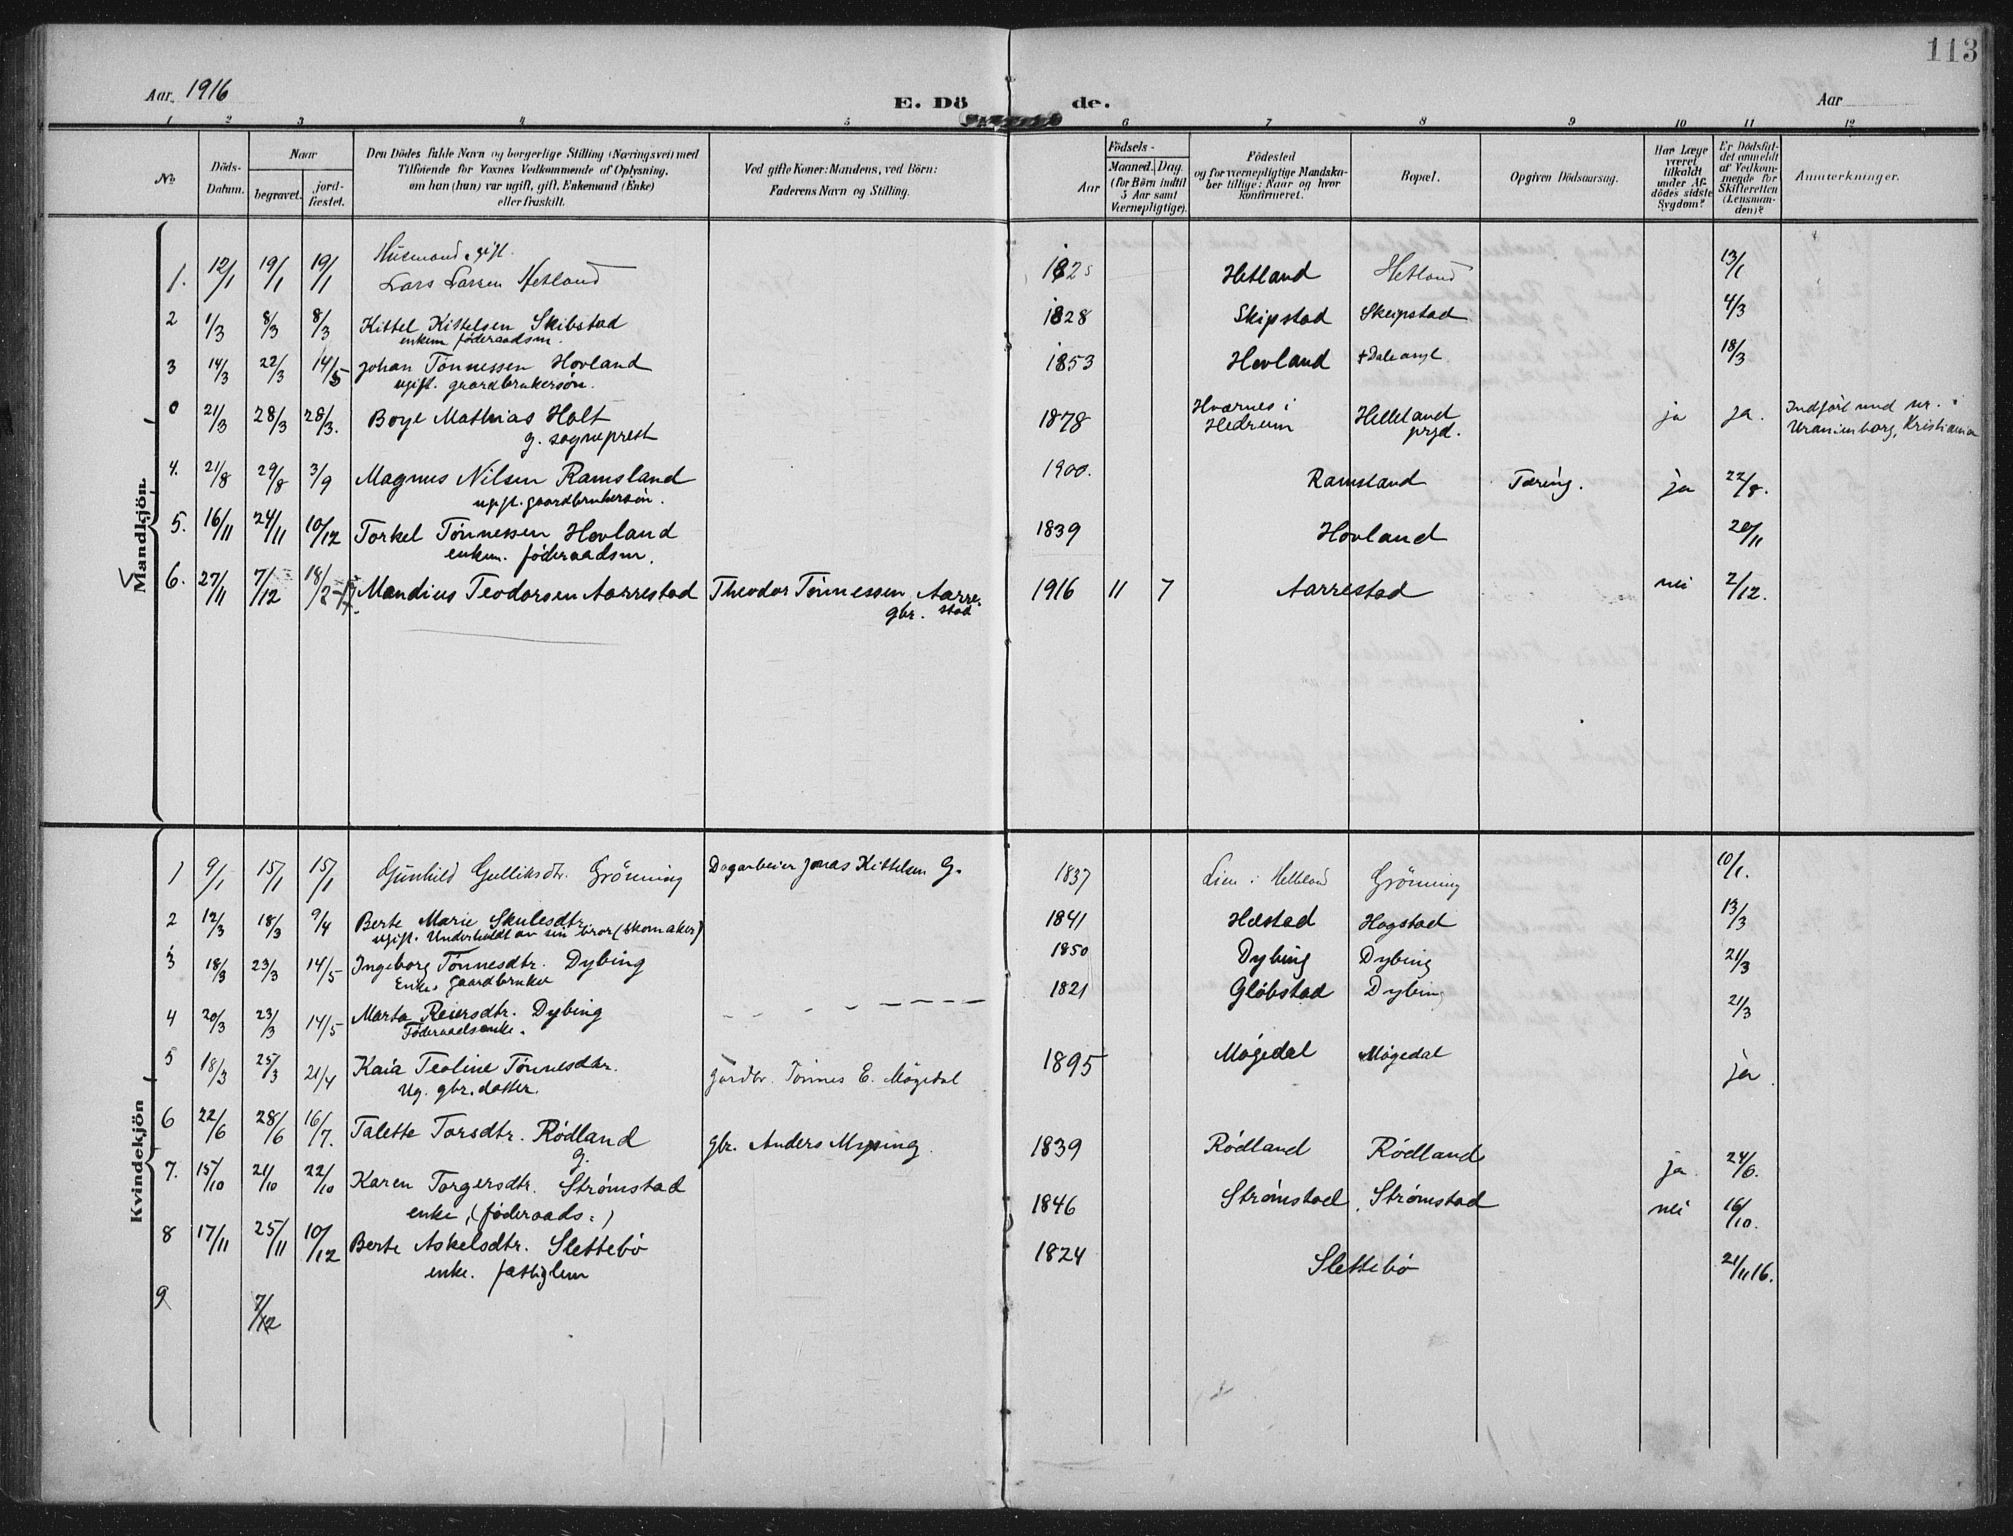 113
Aar 1916
E. Dö de.
Aar
1 2 3 4 5 6 7 8 9 10 11 12
No.
Döds-Datum.
Naar
begravet.
jord-fæstet.
Den Dödes fulde Navn og borgerlige Stilling (Næringsvei) med
Tilföiende for Voxnes Vedkommende af Oplysning,
om han (hun) var ugift, gift, Enkemand (Enke)
eller fraskilt.
Ved gifte Koner: Mandens, ved Börn:
Faderens Navn og Stilling.
Aar
Födsels-
Maaned. Dag.
(for Börn indtil
5 Aar samt
Værnepligtige).
Födested
og for værnepligtige Mandska-
ber tillige: Naar og hvor
konfirmeret.
Bopæl.
Opgiven Dödsaarsag.
Har Læge
været
tilkaldt
under Af-
dödes sidste
Sygdom?
Er Dödsfal-
det anmeldt
af Vedkom-
mende for
Skifteretten
(Lensman-
den)?
Anmærkninger.
Mandkjön.
Husmand, gift.
1. 12/1 19/1 19/1 Lars Larsen Hetland 182 Hetland Hetland 13/1
2 1/3 8/3 8/3 Kittel Kittelsen Skibstad 1828 Skipstad Skeipstad 4/3
enkem. föderaadsm.
3 14/3 22/3 14/5 Johan Tønnessen Hovland 1853 Hovland + Dale asyl 18/3
ugift. gaardbrukersøn.
0 21/3 28/3 28/3. Boye Mathias Holt 1878 Hværnes i Hedrum Helleland prgd. ja ja. Indført und nr. i Uranienborg, Kristiania
g. sogneprest
4. 21/8 29/8 3/9 Magnus Nilsen Ramsland 1900. Ramsland Tæring. ja 22/8.
ugift. gaardbrukersøn.
5. 16/11 24/11 10/12 Torkel Tønnessen Hovland 1839 Hovland 20/11
enkem. føderaadsm.
6. 27/11 7/12 18/2-17. Mandius Teodorsen Aarrestad Theodor Tønnessen Aarrestad gbr. 1916 11 7 Aarrestad nei 2/12.
Kvindekjön
1 9/1 15/1 15/1 Gunhild Gulliksdtr. Grönning Dagarbeier Jonas Kittelsen G. 1837 Lien i Helleland Grönning 10/1.
2 12/3 18/3 9/4 Berte Marie Skulesdtr. 1841 Hæstad Hogstad 13/3
ugift. Underholdt av sin bror (skomaker)
3 18/3 23/3 14/5 Ingeborg Tønnesdtr. Dybing 1850 Dybing Dybing 21/3
Enke gaardbruker
4 20/3 23/3 14/5 Marta Reiersdtr. Dybing - - - - - - - 1821 Gløbstad Dybing 21/3
Föderaadsenke.
5 18/3 25/3 21/4 Kaia Teoline Tønnesdtr. gardbr. Tönnes E. Mögedal 1895 Møgedal Møgedal ja
Ug. gbr. datter.
6 22/6 28/6 16/7. Talette Torsdtr. Rødland gbr. Anders Mysing. 1839 Rødland Rødland ja. 24/6.
g.
7. 15/10 21/10 22/10 Karen Torgersdtr. Strømstad 1846 Strømstad. Strømstad nei 16/10.
enke, (føderaads:)
8 17/11 25/11 10/12 Berte Askelsdtr. Slettebø 1824 Slettebø 21/11 16.
enke. fattiglem
9 7/12